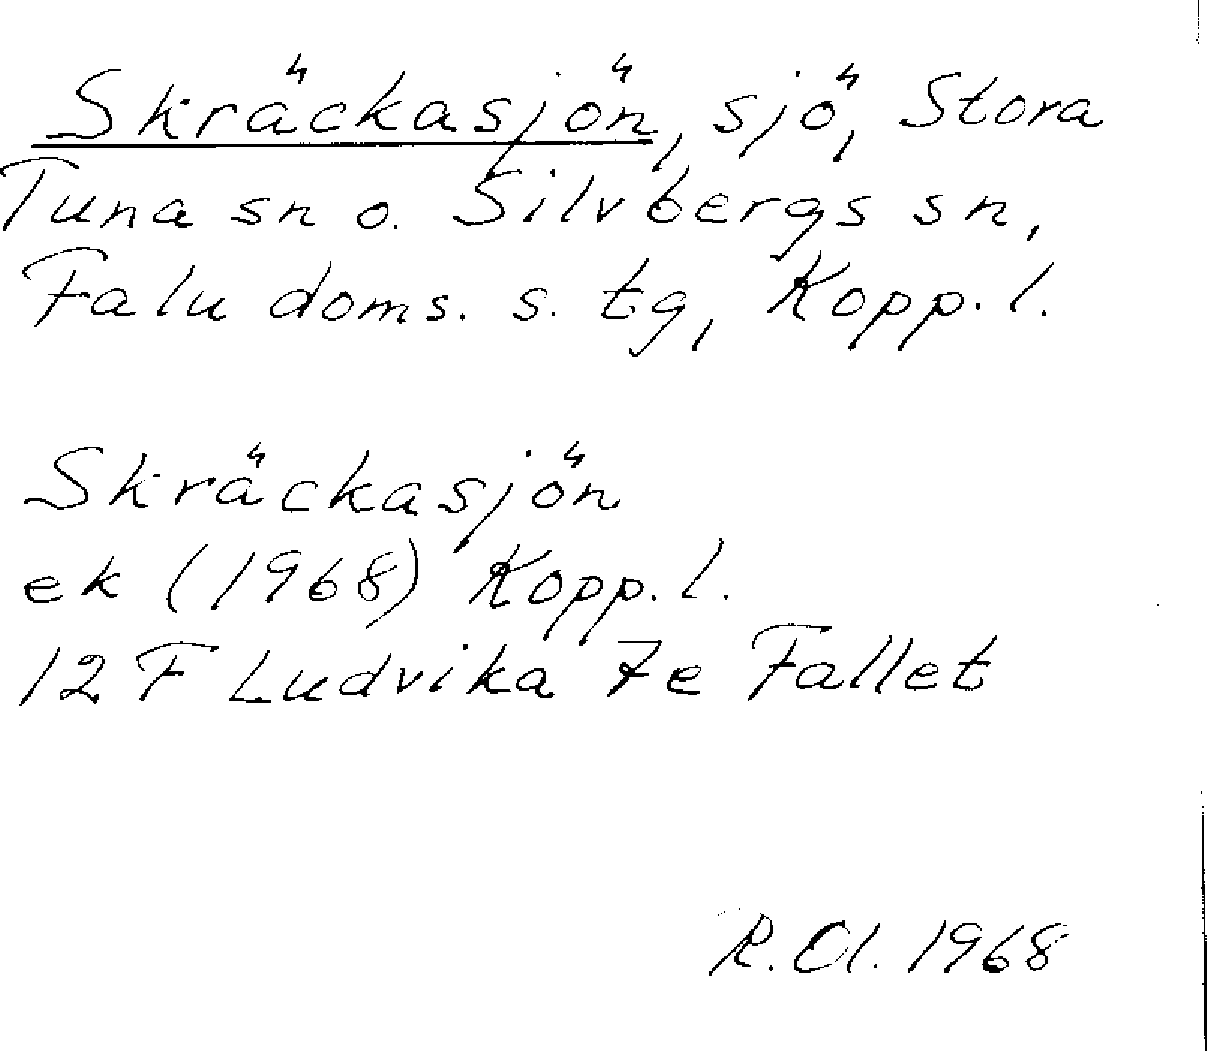 Skräckasjön, sjö, Stora
Tuna sn o. Silvbergs sn,
Falu doms. s. tg, Kopp. l.
Skräckasjön
ek (1968) Kopp. l.
12 F Ludvika 7e Fallet
R. Ol. 1968